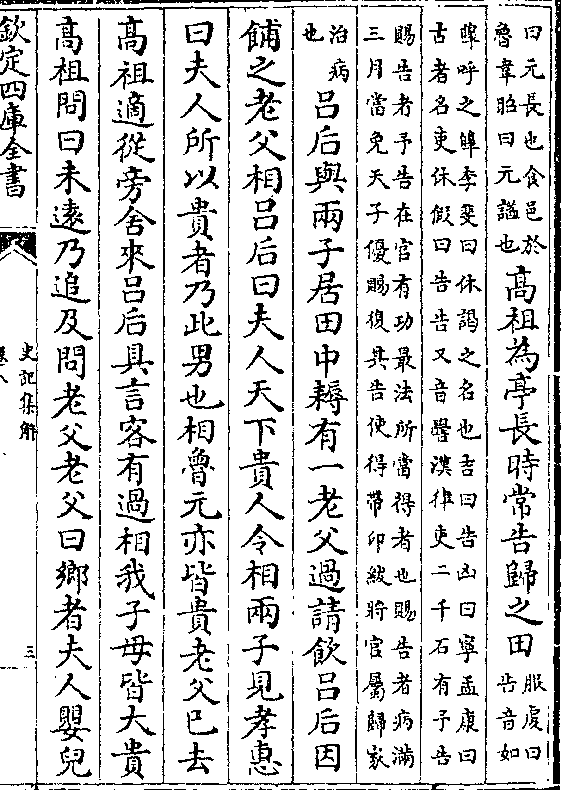 曰元長也食邑於
魯韋昭曰元諡也
髙祖為亭長時常告歸之田
服虔曰
告音如
嘷呼之嘷李斐曰休謁之名也吉曰告凶曰寧孟康曰
古者名吏休假曰告告又音嚳漢律吏二千石有予告
賜告者予告在官有功最法所當得者也賜告者病滿
三月當免天子優賜復其告使得帶印綬將官屬歸家
治病
也
吕后與兩子居田中耨有一老父過請飲吕后因
餔之老父相吕后曰夫人天下貴人令相兩子見孝惠
曰夫人所以貴者乃此男也相魯元亦皆貴老父已去
髙祖適從旁舍來吕后具言客有過相我子母皆大貴
髙祖問曰未逺乃追及問老父老父曰鄉者夫人嬰兒
欽定四庫全書
史記集解
卷八
三